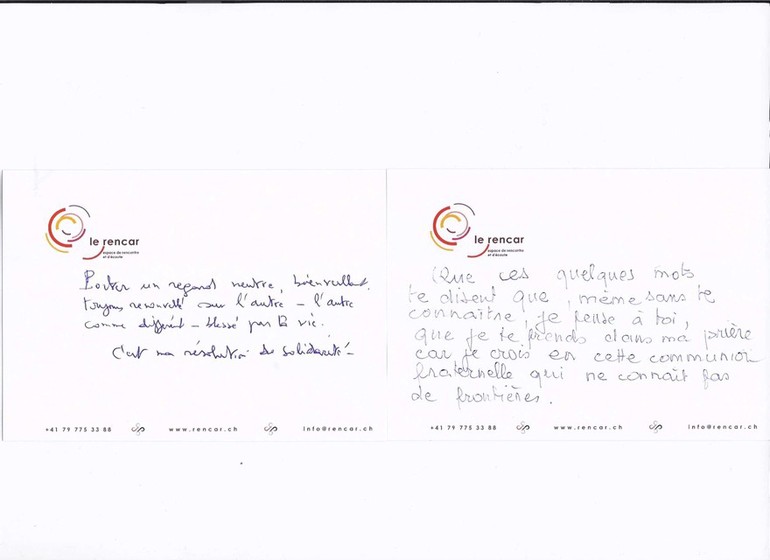 le rencar
espace de rencontre
et d'écoute
Porter un regard neutre, bienveillant.
toujours renouvelé sur l'autre – l'autre
comme différent – blessé par la vie.
C'est ma résolution de solidarité –
+41 79 775 33 88 www.rencar.ch info@rencar.ch
le rencar
espace de rencontre
et d'écoute
Que ces quelques mots
te disent que, même sans te
connaître, je pense à toi,
que je te prends dans ma prière
car je crois en cette communion
fraternelle qui ne connaît pas
de frontières.
+41 79 775 33 88 www.rencar.ch info@rencar.ch